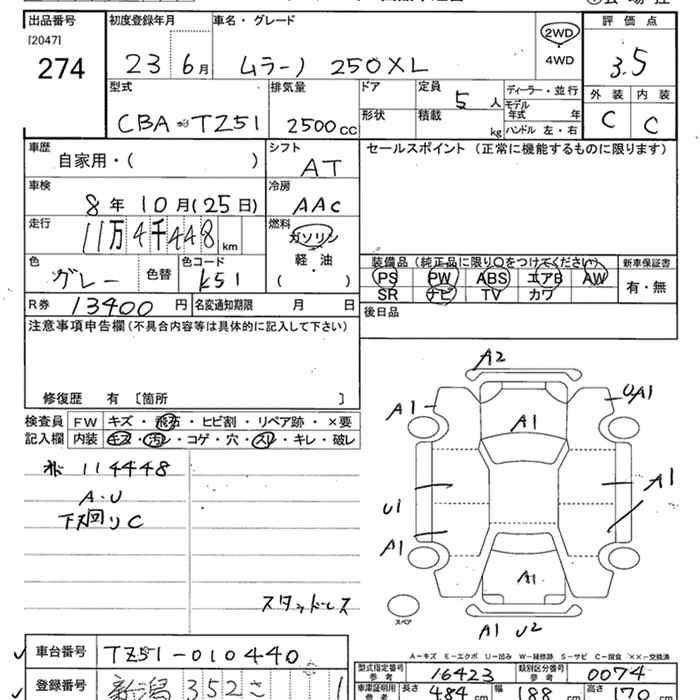 出品番号
[2047]
274
初度登録年月
23 6月
車名・グレード
ムラーノ 250XL
2WD
・
4WD
評価点
3.5
外装 内装
C C
型式
CBA-TZ51
排気量
2500cc
ドア
形状
定員
5人
積載
kg
ディーラー・並行
モデル年式 年
ハンドル 左・右
車歴
自家用・( )
シフト
AT
車検
8年10月(25日)
冷房
AAC
走行
11万4千448km
燃料
ガソリン
軽・油
( )
色
グレー
色替
色コード
K51
R券 13400円
名変通知期限 月 日
セールスポイント (正常に機能するものに限ります)
装備品(純正品に限り○をつけてください)
PS PW ABS エアB AW
SR ナビ TV カワ
新車保証書
有・無
後日品
注意事項申告欄(不具合内容等は具体的に記入して下さい)
修復歴 有 [箇所 ]
検査員
記入欄
FW キズ・飛石・ヒビ割・リペア跡・×要
内装 キズ・汚レ・コゲ・穴・スレ・キレ・破レ
114448
A.U
下廻りC
スタッドレス
A2
A1
UA1
A1
A1
U1
A1
A1
A1 U2
スペア
A－キズ E－エクボ U－凹み W－補修跡 S－サビ C－腐食 ××－交換済
車台番号 TZ51-010440
登録番号 新潟 352 さ 1
型式指定番号
参考
16423
類別区分番号
参考
0074
車庫証明用
参考
長さ 484cm 幅 188cm 高さ 170cm